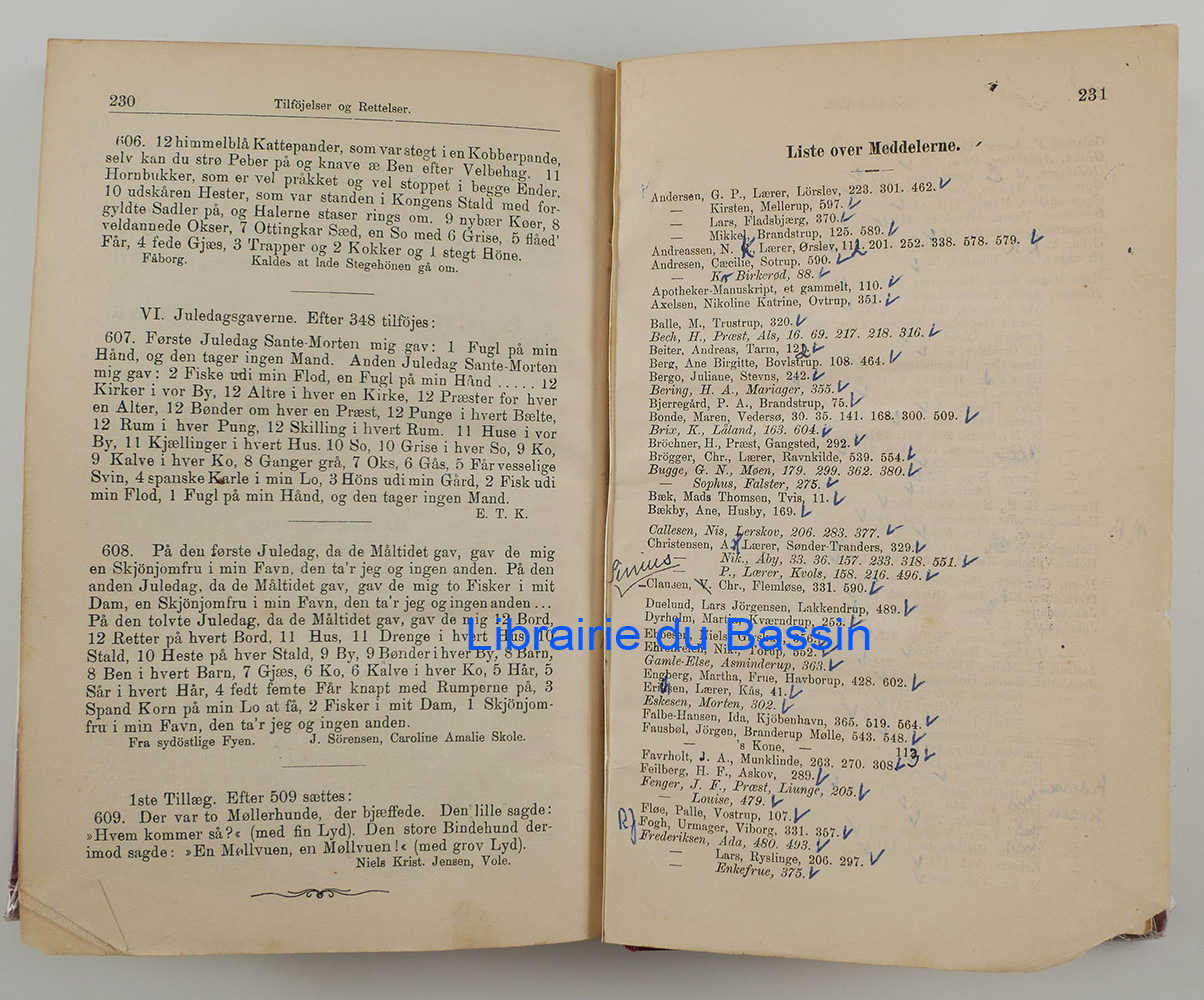 230
Tilföjelser og Rettelser.
606. 12 himmelblå Kattepander, som var stegt i en Kobberpande,
selv kan du strø Peber på og knave æ Ben efter Velbehag. 11
Hornbukker, som er vel pråkket og vel stoppet i begge Ender.
10 udskåren Hester, som var standen i Kongens Stald med for-
gyldte Sadler på, og Halerne staser rings om. 9 nybær Køer, 8
veldannede Okser, 7 Ottingkar Sæd, en So med 6 Grise, 5 flåed'
Får, 4 fede Gjæs, 3 Trapper og 2 Kokker og 1 stegt Höne.
Fåborg. Kaldes at lade Stegehönen gå om.
VI. Juledagsgaverne. Efter 348 tilföjes:
607. Første Juledag Sante-Morten mig gav: 1 Fugl på min
Hånd, og den tager ingen Mand. Anden Juledag Sante-Morten
mig gav: 2 Fiske udi min Flod, en Fugl på min Hånd ..... 12
Kirker i vor By, 12 Altre i hver en Kirke, 12 Præster for hver
en Alter, 12 Bønder om hver en Præst, 12 Punge i hvert Bælte,
12 Rum i hver Pung, 12 Skilling i hvert Rum. 11 Huse i vor
By, 11 Kjællinger i hvert Hus. 10 So, 10 Grise i hver So, 9 Ko,
9 Kalve i hver Ko, 8 Ganger grå, 7 Oks, 6 Gås, 5 Får vesselige
Svin, 4 spanske Karle i min Lo, 3 Höns udi min Gård, 2 Fisk udi
min Flod, 1 Fugl på min Hånd, og den tager ingen Mand.
E. T. K.
608. På den første Juledag, da de Måltidet gav, gav de mig
en Skjönjomfru i min Favn, den ta'r jeg og ingen anden. På den
anden Juledag, da de Måltidet gav, gav de mig to Fisker i mit
Dam, en Skjönjomfru i min Favn, den ta'r jeg og ingen anden ...
På den tolvte Juledag, da de Måltidet gav, gav de mig 12 Bord,
12 Retter på hvert Bord, 11 Hus, 11 Drenge i hvert Hus, 10
Stald, 10 Heste på hver Stald, 9 By, 9 Bønder i hver By, 8 Barn,
8 Ben i hvert Barn, 7 Gjæs, 6 Ko, 6 Kalve i hver Ko, 5 Hår, 5
Sår i hvert Hår, 4 fedt femte Får knapt med Rumperne på, 3
Spand Korn på min Lo at få, 2 Fisker i mit Dam, 1 Skjönjom-
fru i min Favn, den ta'r jeg og ingen anden.
Fra sydöstlige Fyen. J. Sörensen, Caroline Amalie Skole.
1ste Tillæg. Efter 509 sættes:
609. Der var to Møllerhunde, der bjæffede. Den lille sagde:
»Hvem kommer så?« (med fin Lyd). Den store Bindehund der-
imod sagde: »En Møllvuen, en Møllvuen!« (med grov Lyd).
Niels Krist. Jensen, Vole.
231
Liste over Meddelerne.
Andersen, G. P., Lærer, Lörslev, 223. 301. 462.
— Kirsten, Mellerup, 597.
— Lars, Fladsbjærg, 370.
— Mikkel, Brandstrup, 125. 589.
Andreassen, N. K., Lærer, Ørslev, 201. 252. 338. 578. 579.
Andresen, Cæcilie, Sotrup, 590.
— Birkerød, 88.
Apotheker-Manuskript, et gammelt, 110.
Axelsen, Nikoline Katrine, Ovtrup, 351.
Balle, M., Trustrup, 320.
Bech, H., Præst, Als, 16. 69. 217. 218. 316.
Beiter, Andreas, Tarm,
Berg, Ane Birgitte, Bovlstrup, 108. 464.
Bergo, Juliane, Stevns, 242.
Bering, H. A., Mariager, 355.
Bjerregård, P. A., Brandstrup, 75.
Bonde, Maren, Vedersø, 30. 35. 141. 168. 300. 509.
Brix, K., Låland, 163. 604.
Bröchner, H., Præst, Gangsted, 292.
Brögger, Chr., Lærer, Ravnkilde, 539. 554.
Bugge, G. N., Møen, 179. 299. 362. 380.
— Sophus, Falster, 275.
Bæk, Mads Thomsen, Tvis, 11.
Bækby, Ane, Husby, 169.
Callesen, Nis, Lerskov, 206. 283. 377.
Christensen, A., Lærer, Sønder-Tranders, 329.
— Nik., Åby, 33. 36. 157. 233. 318. 551.
— P., Lærer, Kvols, 158. 216. 496.
Clausen, V. Chr., Flemløse, 331. 590.
Duelund, Lars Jörgensen, Lakkendrup, 489.
Dyrholm, Martin, Kværndrup, 253.
Librairie du Bassin
Gamle-Else, Asminderup, 363.
Engberg, Martha, Frue, Havborup, 428. 602.
Eriksen, Lærer, Kås, 41.
Eskesen, Morten, 302.
Falbe-Hansen, Ida, Kjöbenhavn, 365. 519. 564.
Fausböl, Jörgen, Branderup Mølle, 543. 548.
— 's Kone, — 113
Favrholt, J. A., Munklinde, 263. 270. 308.
Feilberg, H. F., Askov, 289.
Fenger, J. F., Præst, Liunge, 205.
— Louise, 479.
Fløe, Palle, Vostrup, 107.
Fogh, Urmager, Viborg, 331. 357.
Frederiksen, Ada, 480. 493.
— Lars, Ryslinge, 206. 297.
— Enkefrue, 375.